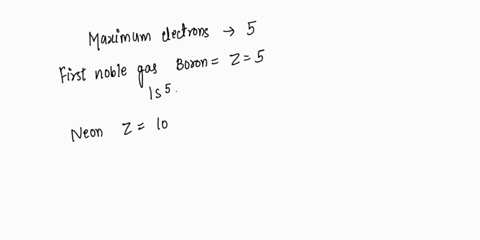 Maximum electrons → 5
First noble gas Boron = Z = 5
1s⁵.
Neon Z = 10